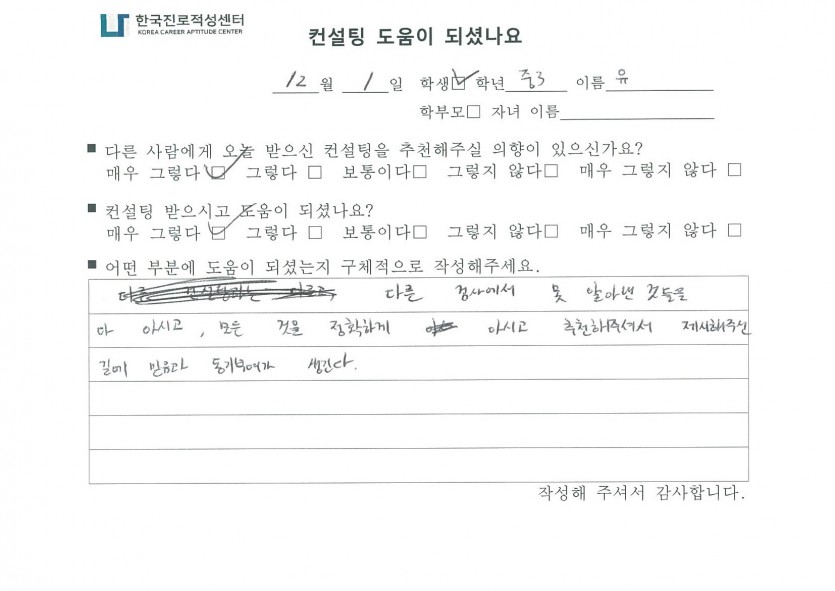 한국진로적성센터
KOREA CAREER APTITUDE CENTER
컨설팅 도움이 되셨나요
12월 1일 학생☑ 학년 중3 이름 유
학부모□ 자녀 이름
■ 다른 사람에게 오늘 받으신 컨설팅을 추천해주실 의향이 있으신가요?
매우 그렇다 ☑ 그렇다 □ 보통이다□ 그렇지 않다□ 매우 그렇지 않다 □
■ 컨설팅 받으시고 도움이 되셨나요?
매우 그렇다 ☑ 그렇다 □ 보통이다□ 그렇지 않다□ 매우 그렇지 않다 □
■ 어떤 부분에 도움이 되셨는지 구체적으로 작성해주세요.
다른 검사에서 못 알아낸 것들을
다 아시고, 모든 것을 정확하게 아시고 추천해주셔서 제시해주신
길에 믿음과 동기부여가 생긴다.
작성해 주셔서 감사합니다.